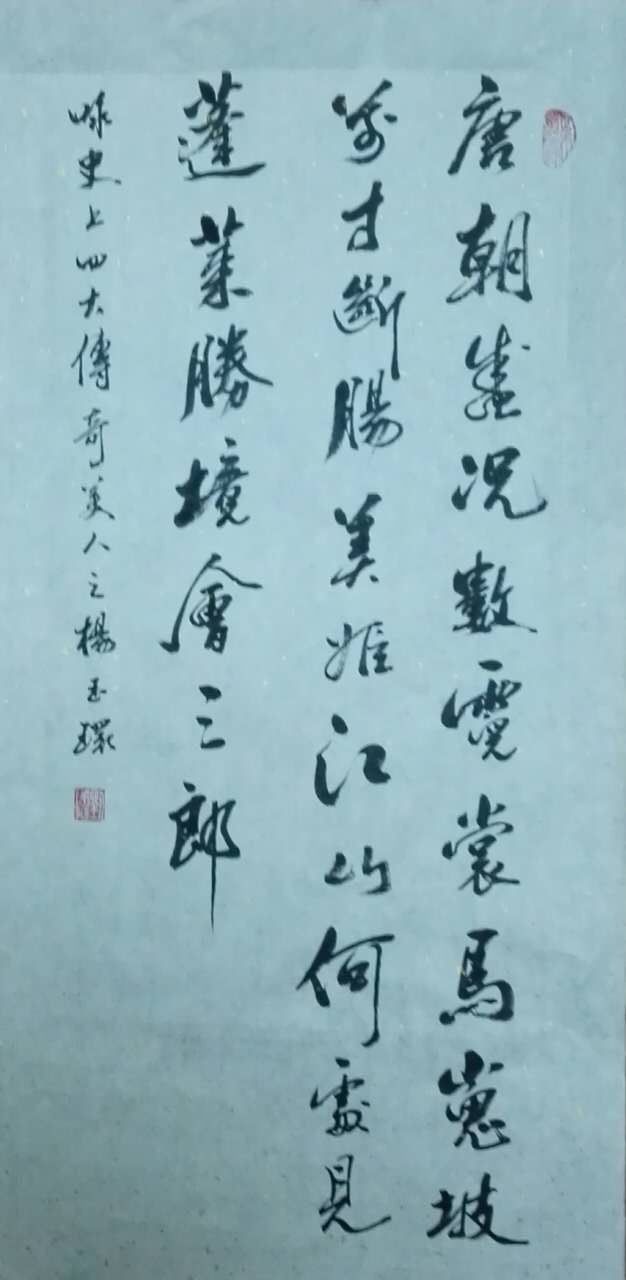 唐朝盛况數霓裳馬嵬坡
前寸斷腸美姬江山何處見
蓬萊勝境會三郎
咏史上四大傳奇美人之楊玉環